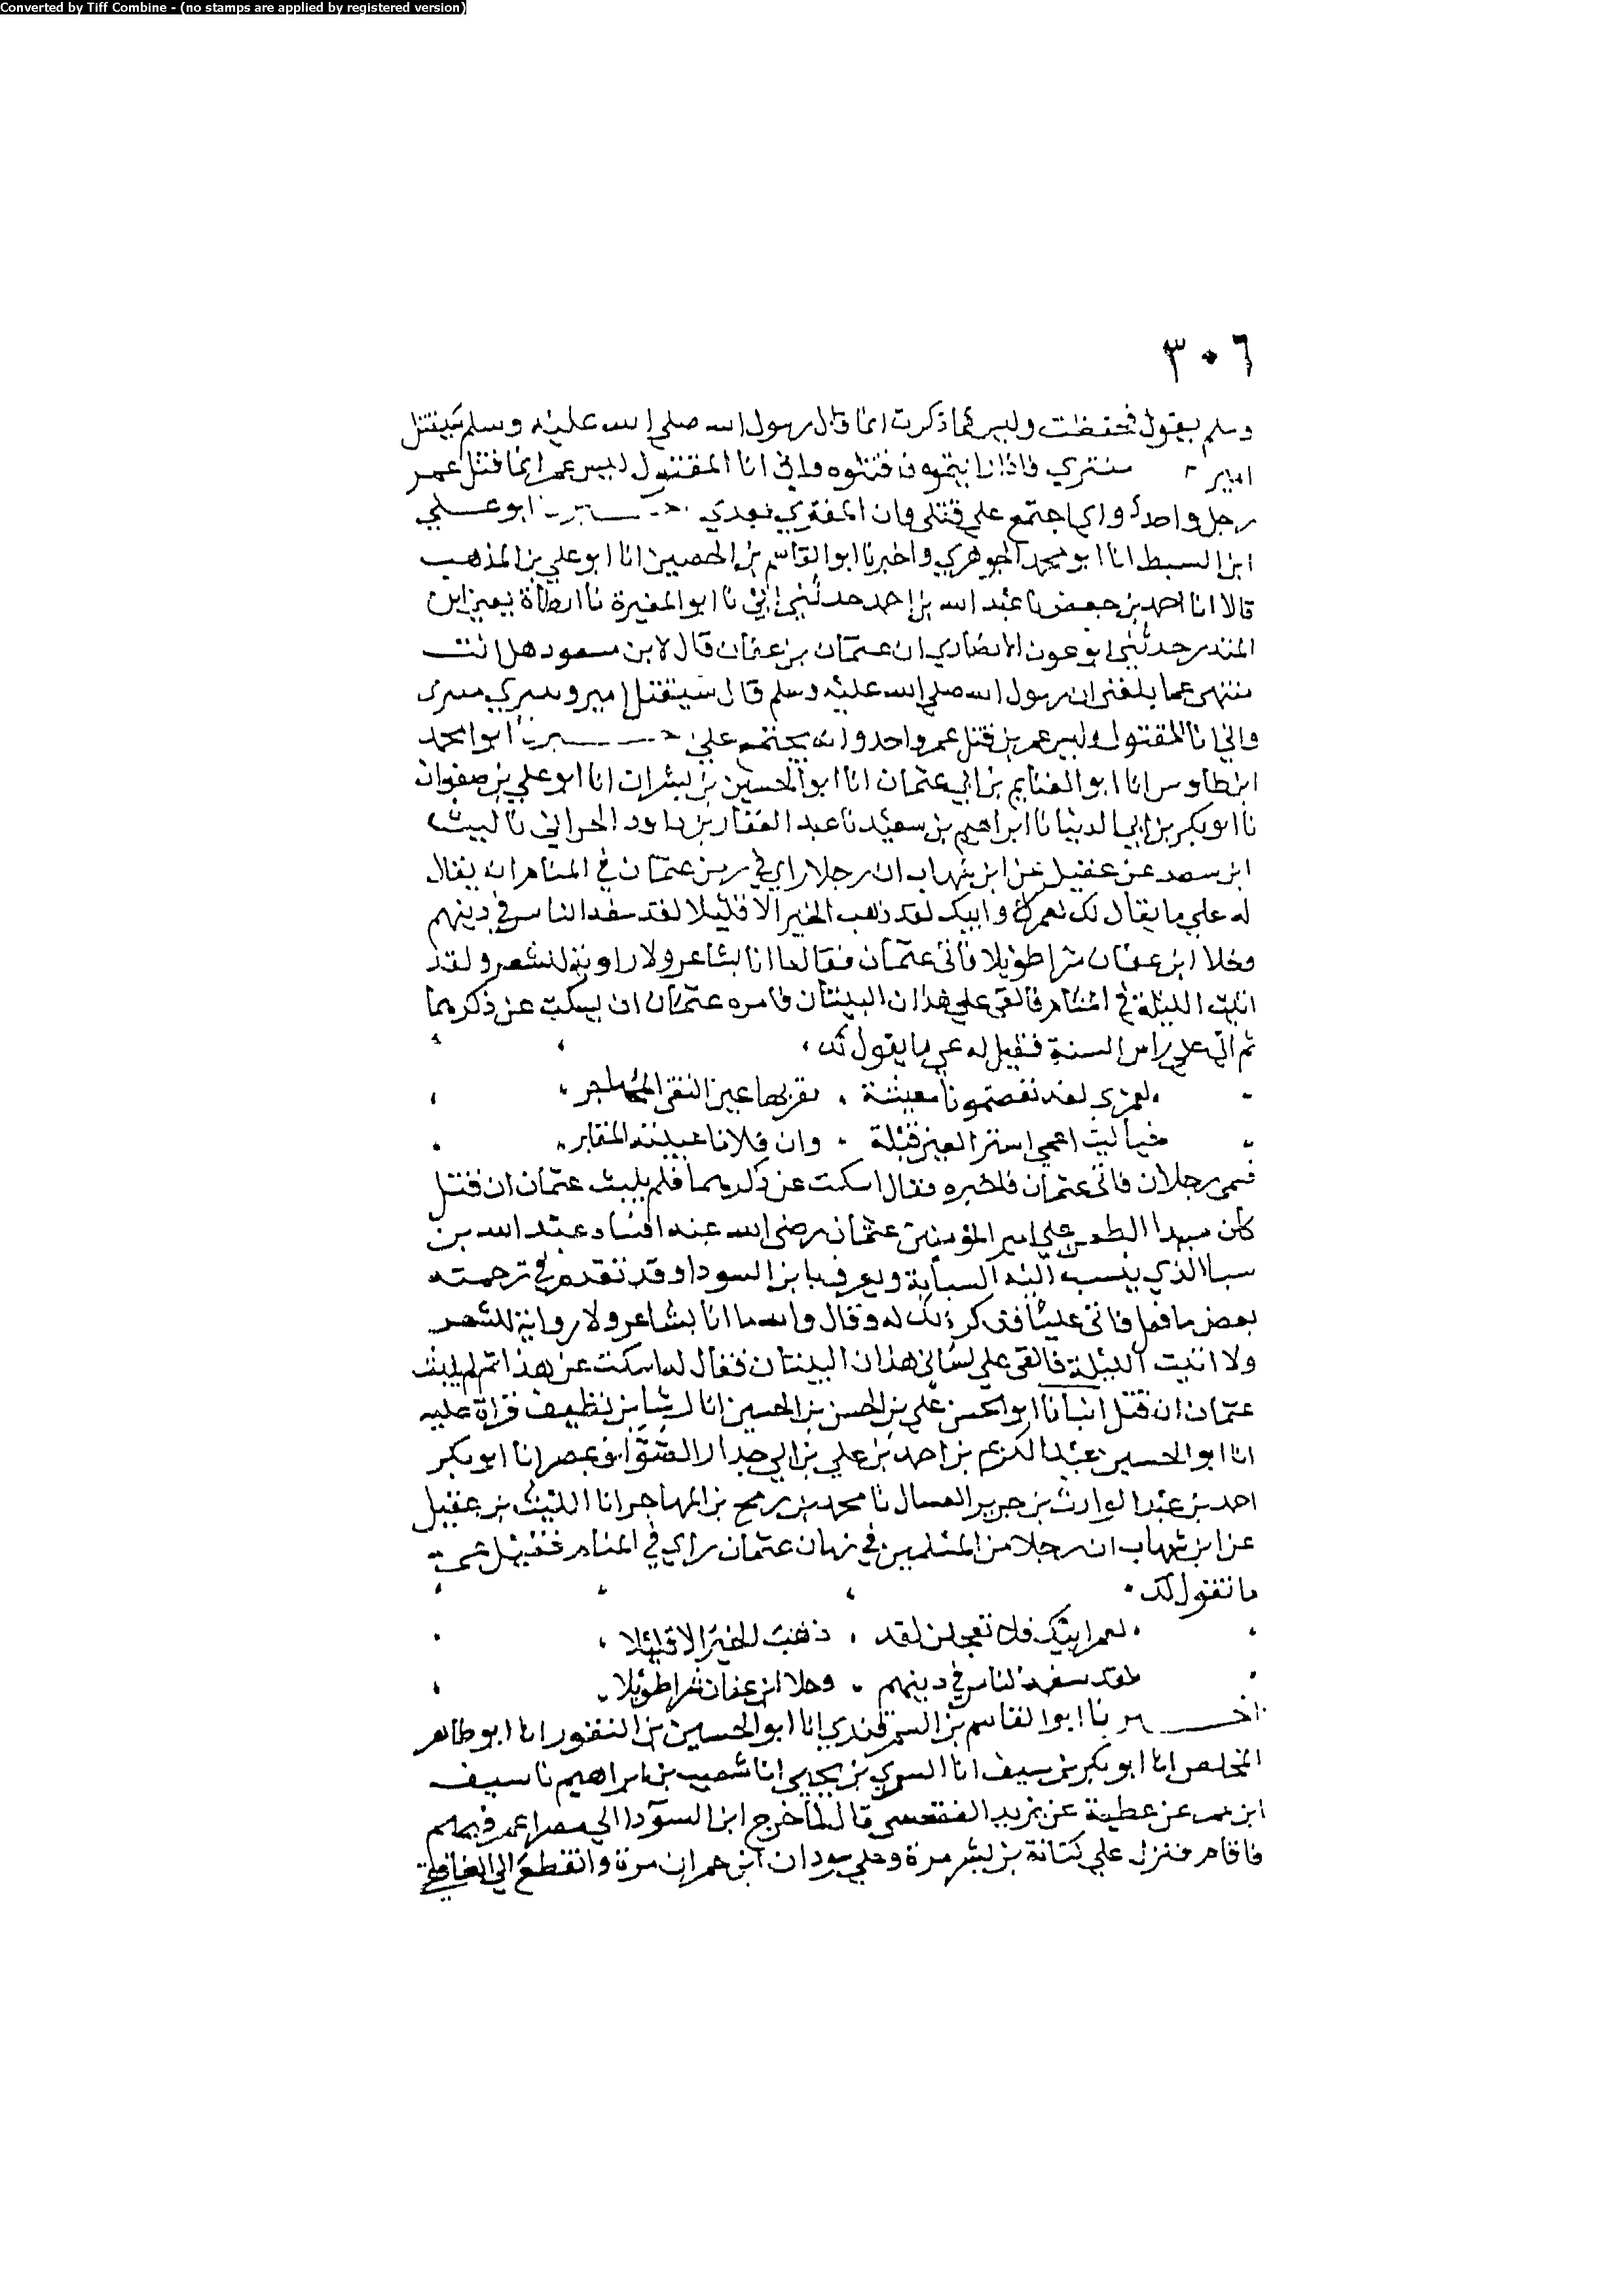 Converted by Tiff Combine - (no stamps are applied by registered version)
٣٠٦
وسلم يقول فحفظت وليس كما ذكرت انما قال رسول الله صلى الله عليه وسلم سيقتل
امير منتزي فاذا قتلوه واني انا المقتول ليس عمر انما قتل عمر
رجل واحد وانه اجتمع علي قتلي وان المفتري بعدي ابو علي
ابن السبط انا ابو محمد الجوهري واخبرنا ابو القاسم بن الحصين انا ابو علي بن المذهب
قالا انا احمد بن جعفر نا عبد الله بن احمد حدثني ابي نا ابو المغيرة نا ارطاة يعني ابن
المنذر حدثني ابو عون الانصاري ان عثمان بن عفان قال لابن مسعود هل انت
منتهى عما بلغني ان رسول الله صلى الله عليه وسلم قال سيقتل امير
واني انا المقتول وليس عمر قتل عمر واحد وانه يجتمع علي ابو محمد
ابن طاوس انا ابو الغنايم بن ابي عثمان انا ابو الحسين بن بشران انا ابو علي بن صفوان
نا ابو بكر بن ابي الدنيا نا ابراهيم بن سعيد نا عبد الغفار بن داود الحراني نا ليث
ابن سعد عن عقيل عن ابن شهاب ان رجلا راي في زمن عثمان في المنام ان يقال
له علي ما يقال لك لعمر وابيك لقد ذهب الخير الا قليلا لقد سفه الناس في دينهم
وخلا ابن عفان شرا طويلا فاتى عثمان فقال ما انا بشاعر ولا راوية للشعر ولقد
اتيت الليلة في المنام فالقى علي هذان البيتان فامره عثمان ان يسكت عن ذكرهما
ثم اتى علي راس السنة فقيل له عي ما يقول لك
لعمري لقد نغصتمونا معيشة تقر بها عين التقي المهاجر
فيا ليت اعمى استر العين قبلة وان فلانا غيبته المقابر
فسمى رجلان فاتى عثمان فاخبره فقال اسكت عن ذكرهما فلم يلبث عثمان ان قتل
كان مبدا الطعن علي امير المؤمنين عثمان رضى الله عنه افساد عبد الله بن
سبا الذي ينسب اليه السبأية ويعرف بابن السودا وقد تقدم في ترجمته
بعض ما فعل فاتى عليا فذكر ذلك له وقال والله ما انا بشاعر ولا رواية للشعر
ولا اتيت الليلة فالقى علي لساني هذان البيتان فقال له اسكت عن هذا ثم لم يلبث
عثمان ان قتل انبانا ابو الحسن علي بن الحسن بن الحسين انا رشا بن نظيف قراة عليه
انا ابو الحسين عبد الكريم بن احمد بن علي بن ابي جدار الصواف بمصر انا ابو بكر
احمد بن عبد الوارث بن جرير العسال نا محمد بن رمح بن المهاجر انا الليث بن عقيل
عن ابن شهاب ان رجلا من المسلمين في زمان عثمان راي في المنام فقيل
ما نقول لك
لعمر ابيك فلا تعجلن لقد ذهب الخير الا قليلا
لقد سفه الناس في دينهم وخلا ابن عفان شرا طويلا
اخبرنا ابو القاسم بن السمرقندي انا ابو الحسين بن النقور انا ابو طاهر
المخلص انا ابو بكر بن سيف انا السري بن يحيى انا شعيب بن ابراهيم نا سيف
ابن عمر عن عطية عن يزيد الفقعسي قال لما خرج ابن السودا الى مصر اعمر فيهم
فاقام فنزل علي كنانة بن بشر مرة وعلي سودان ابن حمران مرة وانقطع الى الغافقي